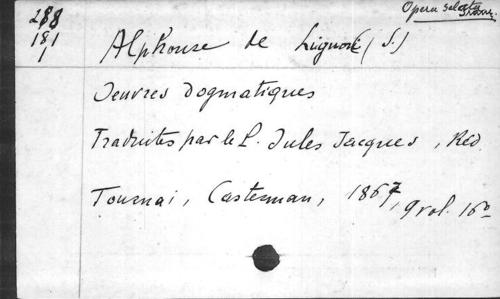 Opera selecta
288
181
1
Alphonse de Liguori (S.)
Oeuvres Dogmatiques
Traduites par le P. Jules Jacques, Red.
Tournai, Casterman, 1867, 9 vol. 16°